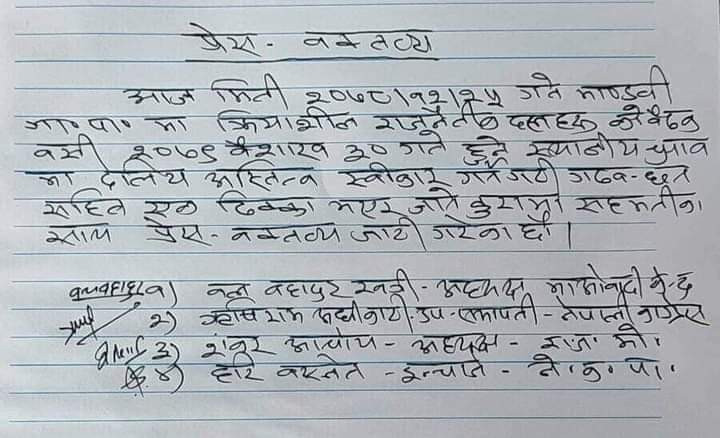 प्रेस - वक्तव्य
आज मिती २०७८।१२।२५ गते माण्डवी
गा॰ पा॰ मा क्रियाशील राजनैतीक दलहरु को बैठक
वसी २०७९ बैशाख ३० गते हुने स्थानीय चुनाव
मा दलिय अस्तित्व स्वीकार गर्ने गरी गठबन्धन
सहित एक ढिक्का भएर जाने कुरामा सहमतीका
साथ प्रेस - वक्तव्य जारी गरेका छौ ।
१) बहादुर - अध्यक्ष माओवादी केन्द्र
२) राम अधीकारी उप-सभापती - नेपाली काग्रेस
३) शंकर आचार्य - अध्यक्ष - रा॰ज॰ मो॰
४) हरि वस्नेत - इन्चार्ज - ने॰ क॰ पा॰